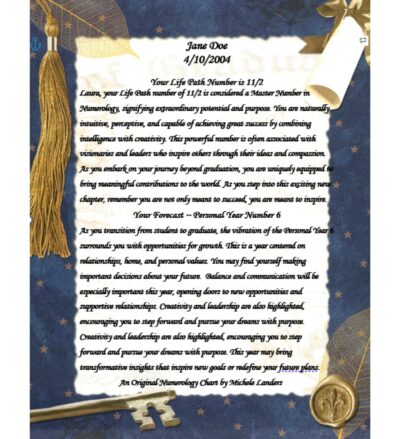 Jane Doe
4/10/2004
Your Life Path Number is 11/2
Laura, your Life Path number of 11/2 is considered a Master Number in
Numerology, signifying extraordinary potential and purpose. You are naturally
intuitive, perceptive, and capable of achieving great success by combining
intelligence with creativity. This powerful number is often associated with
visionaries and leaders who inspire others through their ideas and compassion.
As you embark on your journey beyond graduation, you are uniquely equipped to
bring meaningful contributions to the world. As you step into this exciting new
chapter, remember you are not only meant to succeed, you are meant to inspire.
Your Forecast ~ Personal Year Number 6
As you transition from student to graduate, the vibration of the Personal Year 6
surrounds you with opportunities for growth. This is a year centered on
relationships, home, and personal values. You may find yourself making
important decisions about your future. Balance and communication will be
especially important this year, opening doors to new opportunities and
supportive relationships. Creativity and leadership are also highlighted,
encouraging you to step forward and pursue your dreams with purpose.
Creativity and leadership are also highlighted, encouraging you to step
forward and pursue your dreams with purpose. This year may bring
transformative insights that inspire new goals or redefine your future plans.
An Original Numerology Chart by Michele Landers